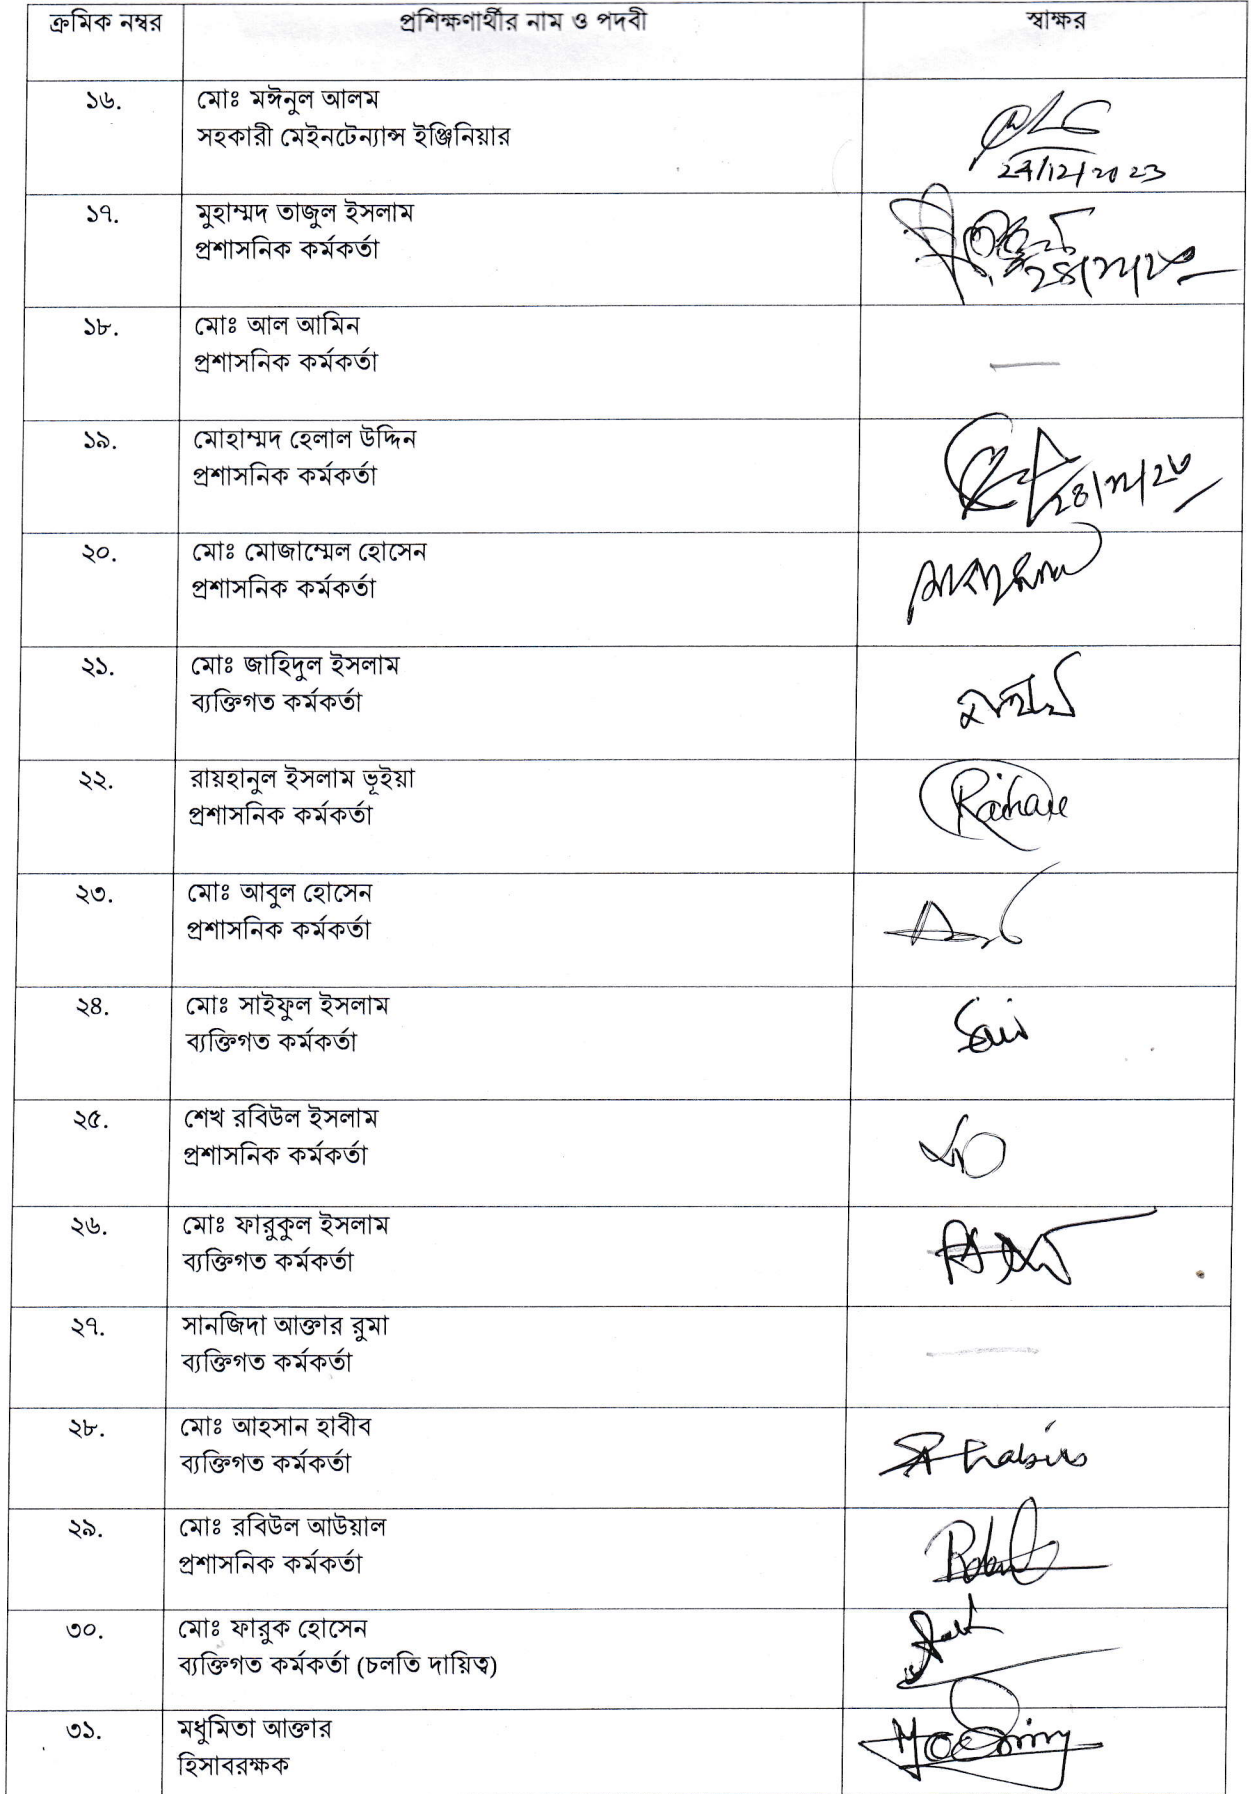 ক্রমিক নম্বর প্রশিক্ষণার্থীর নাম ও পদবী স্বাক্ষর
১৬. মোঃ মঈনুল আলম
সহকারী মেইনটেন্যান্স ইঞ্জিনিয়ার
১৭. মুহাম্মদ তাজুল ইসলাম
প্রশাসনিক কর্মকর্তা
১৮. মোঃ আল আমিন
প্রশাসনিক কর্মকর্তা
১৯. মোহাম্মদ হেলাল উদ্দিন
প্রশাসনিক কর্মকর্তা
২০. মোঃ মোজাম্মেল হোসেন
প্রশাসনিক কর্মকর্তা
২১. মোঃ জাহিদুল ইসলাম
ব্যক্তিগত কর্মকর্তা
২২. রায়হানুল ইসলাম ভূইয়া
প্রশাসনিক কর্মকর্তা
২৩. মোঃ আবুল হোসেন
প্রশাসনিক কর্মকর্তা
২৪. মোঃ সাইফুল ইসলাম
ব্যক্তিগত কর্মকর্তা
২৫. শেখ রবিউল ইসলাম
প্রশাসনিক কর্মকর্তা
২৬. মোঃ ফারুকুল ইসলাম
ব্যক্তিগত কর্মকর্তা
২৭. সানজিদা আক্তার রুমা
ব্যক্তিগত কর্মকর্তা
২৮. মোঃ আহসান হাবীব
ব্যক্তিগত কর্মকর্তা
২৯. মোঃ রবিউল আউয়াল
প্রশাসনিক কর্মকর্তা
৩০. মোঃ ফারুক হোসেন
ব্যক্তিগত কর্মকর্তা (চলতি দায়িত্ব)
৩১. মধুমিতা আক্তার
হিসাবরক্ষক